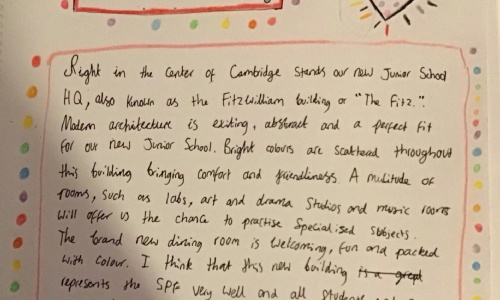 Right in the center of Cambridge stands our new Junior School
HQ, also known as the Fitzwilliam building or "The Fitz.".
Modern architecture is exiting, abstract and a perfect fit
for our new Junior School. Bright colours are scattead throughout
this building bringing comfort and friendliness. A mulitude of
rooms, such as labs, art and drama studios and music rooms
will offer us the chance to practise specialised subjects.
The brand new dining room is welcoming, fun and packed
with colour. I think that this new building is a great
represents the SPF very well and all students